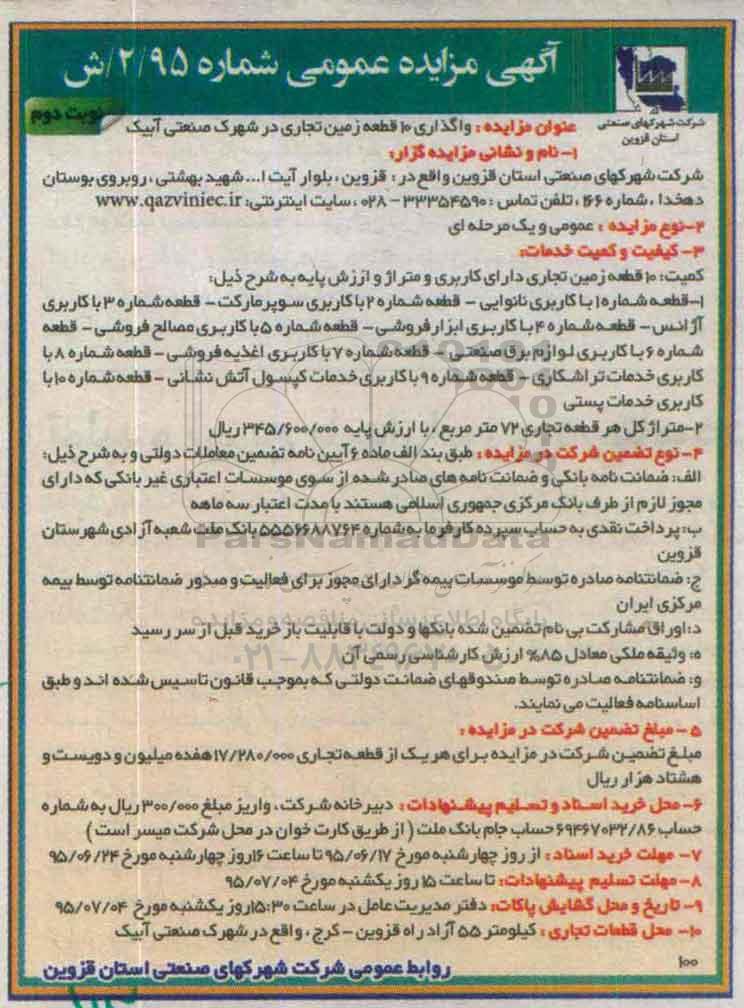 آگهی مزایده عمومی شماره ۲/۹۵/ش
نوبت دوم
شرکت شهرکهای صنعتی
استان قزوین
عنوان مزایده : واگذاری ۱۰ قطعه زمین تجاری در شهرک صنعتی آبیک
۱- نام و نشانی مزایده گزار:
شرکت شهرکهای صنعتی استان قزوین واقع در : قزوین ، بلوار آیت ا... شهید بهشتی ، روبروی بوستان
دهخدا ، شماره ۱۶۶ ، تلفن تماس : ۳۳۳۵۴۵۹۰ - ۰۲۸ ، سایت اینترنتی: www.qazviniec.ir
۲-نوع مزایده : عمومی و یک مرحله ای
۳- کیفیت و کمیت خدمات:
کمیت: ۱۰ قطعه زمین تجاری دارای کاربری و متراژ و ارزش پایه به شرح ذیل:
۱-قطعه شماره ۱ با کاربری نانوایی - قطعه شماره ۲ با کاربری سوپرمارکت - قطعه شماره ۳ با کاربری
آژانس - قطعه شماره ۴ با کاربری ابزار فروشی - قطعه شماره ۵ با کاربری مصالح فروشی - قطعه
شماره ۶ با کاربری لوازم برق صنعتی - قطعه شماره ۷ با کاربری اغذیه فروشی - قطعه شماره ۸ با
کاربری خدمات تراشکاری - قطعه شماره ۹ با کاربری خدمات کپسول آتش نشانی - قطعه شماره ۱۰ با
کاربری خدمات پستی
۲-متراژ کل هر قطعه تجاری ۷۲ متر مربع ، با ارزش پایه ۳۴۵/۶۰۰/۰۰۰ ریال
۴- نوع تضمین شرکت در مزایده : طبق بند الف ماده ۶ آیین نامه تضمین معاملات دولتی و به شرح ذیل:
الف: ضمانت نامه بانکی و ضمانت نامه های صادر شده از سوی موسسات اعتباری غیر بانکی که دارای
مجوز لازم از طرف بانک مرکزی جمهوری اسلامی هستند با مدت اعتبار سه ماهه
ب: پرداخت نقدی به حساب سپرده کارفرما به شماره ۵۵۵۶۶۸۸۷۶۴ بانک ملت شعبه آزادی شهرستان
قزوین
ج: ضمانتنامه صادره توسط موسسات بیمه گر دارای مجوز برای فعالیت و صدور ضمانتنامه توسط بیمه
مرکزی ایران
د: اوراق مشارکت بی نام تضمین شده بانکها و دولت با قابلیت باز خرید قبل از سر رسید
ه: وثیقه ملکی معادل ۸۵% ارزش کارشناسی رسمی آن
و: ضمانتنامه صادره توسط صندوقهای ضمانت دولتی که بموجب قانون تاسیس شده اند و طبق
اساسنامه فعالیت می نمایند.
۵ - مبلغ تضمین شرکت در مزایده :
مبلغ تضمین شرکت در مزایده برای هر یک از قطعه تجاری ۱۷/۲۸۰/۰۰۰ هفده میلیون و دویست و
هشتاد هزار ریال
۶- محل خرید اسناد و تسلیم پیشنهادات : دبیرخانه شرکت ، واریز مبلغ ۳۰۰/۰۰۰ ریال به شماره
حساب ۶۹۴۶۷۰۳۲/۸۶ حساب جام بانک ملت ( از طریق کارت خوان در محل شرکت میسر است )
۷- مهلت خرید اسناد : از روز چهارشنبه مورخ ۹۵/۰۶/۱۷ تا ساعت ۱۶ روز چهارشنبه مورخ ۹۵/۰۶/۲۴
۸-مهلت تسلیم پیشنهادات: تا ساعت ۱۵ روز یکشنبه مورخ ۹۵/۰۷/۰۴
۹- تاریخ و محل گشایش پاکات: دفتر مدیریت عامل در ساعت ۱۵:۳۰ روز یکشنبه مورخ ۹۵/۰۷/۰۴
۱۰- محل قطعات تجاری : کیلومتر ۵۵ آزاد راه قزوین - کرج ، واقع در شهرک صنعتی آبیک
۱۰۰
روابط عمومی شرکت شهرکهای صنعتی استان قزوین
ParsNamadData
پایگاه اطلاع رسانی مناقصه و مزایده